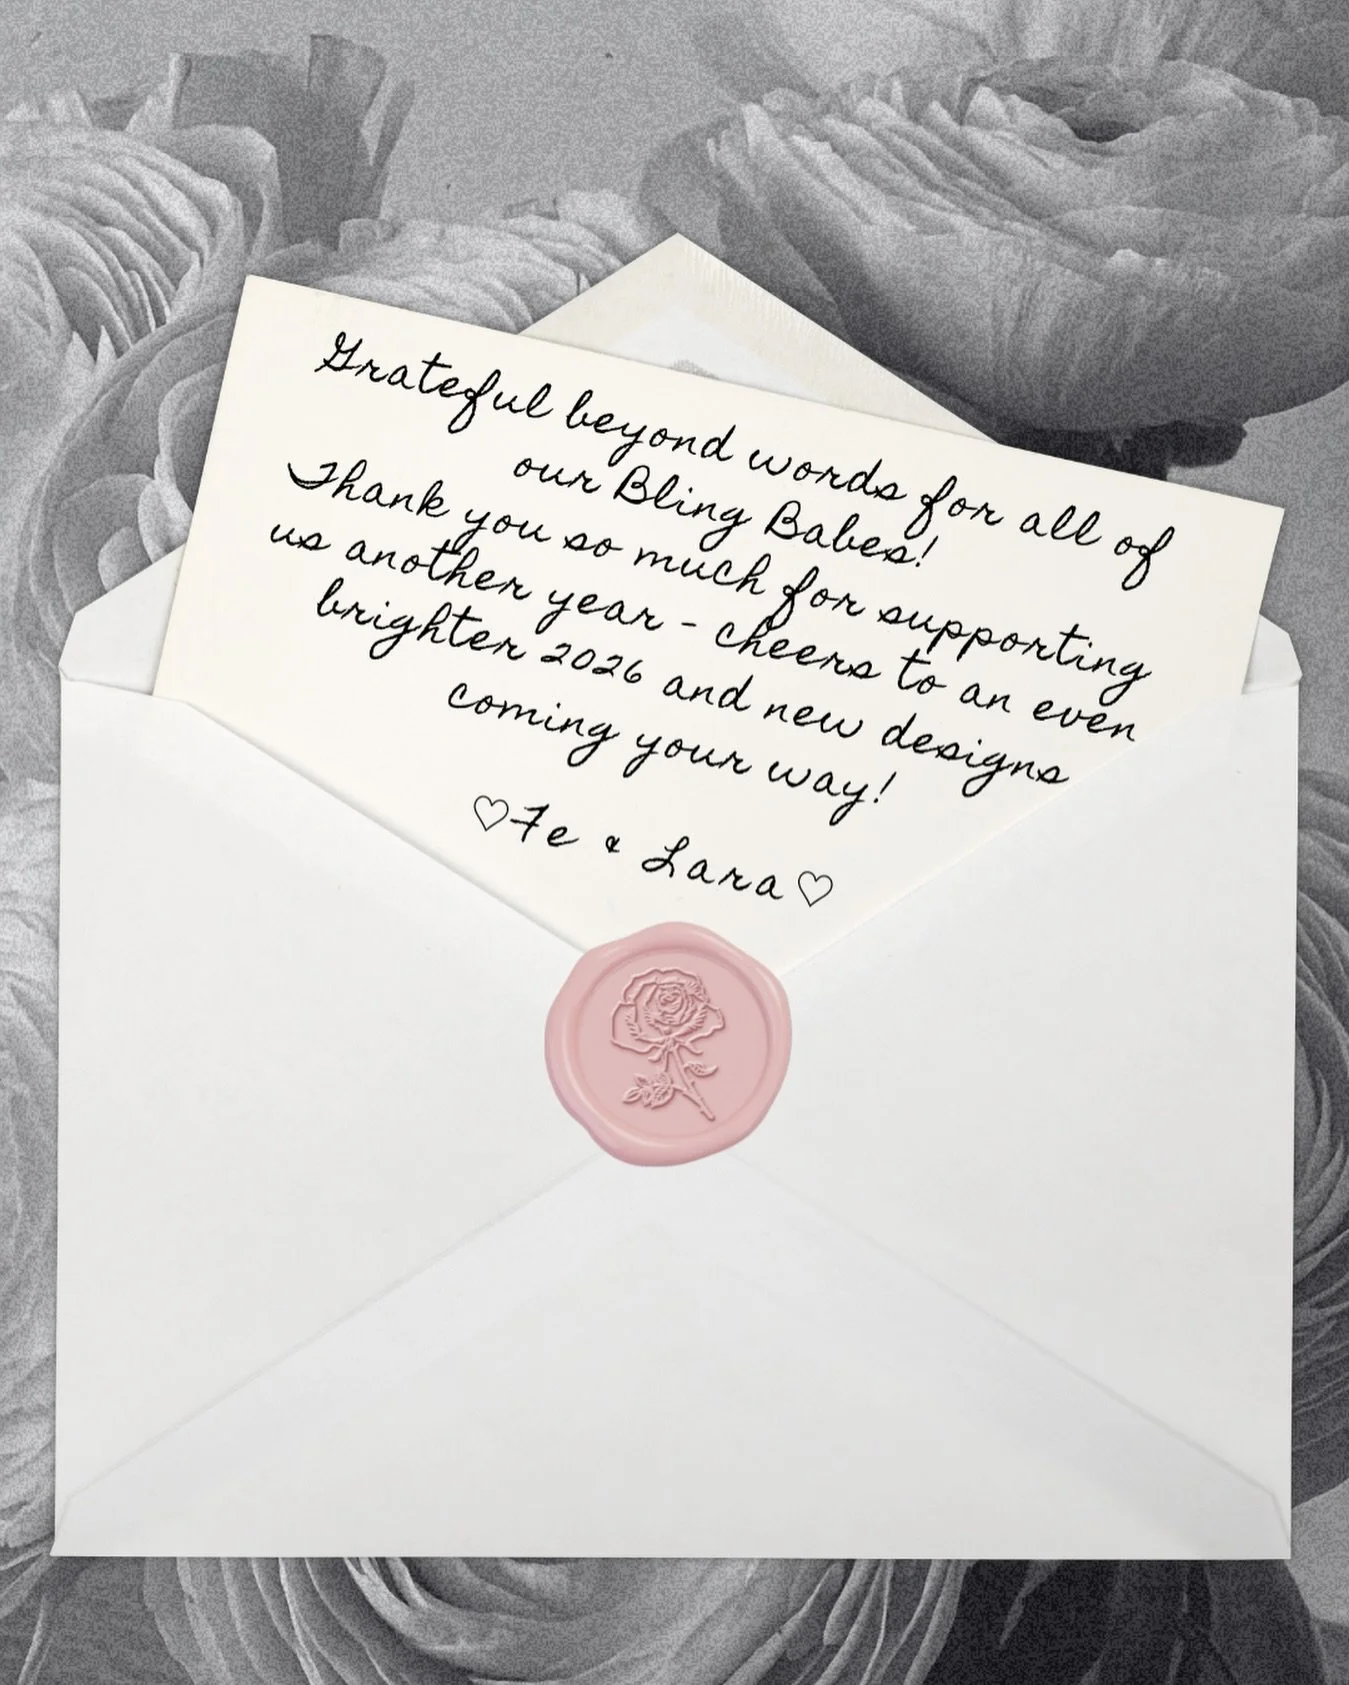 Grateful beyond words for all of
our Bling Babes!
Thank you so much for supporting
us another year - cheers to an even
brighter 2026 and new designs
coming your way!
♡Fe & Lara♡